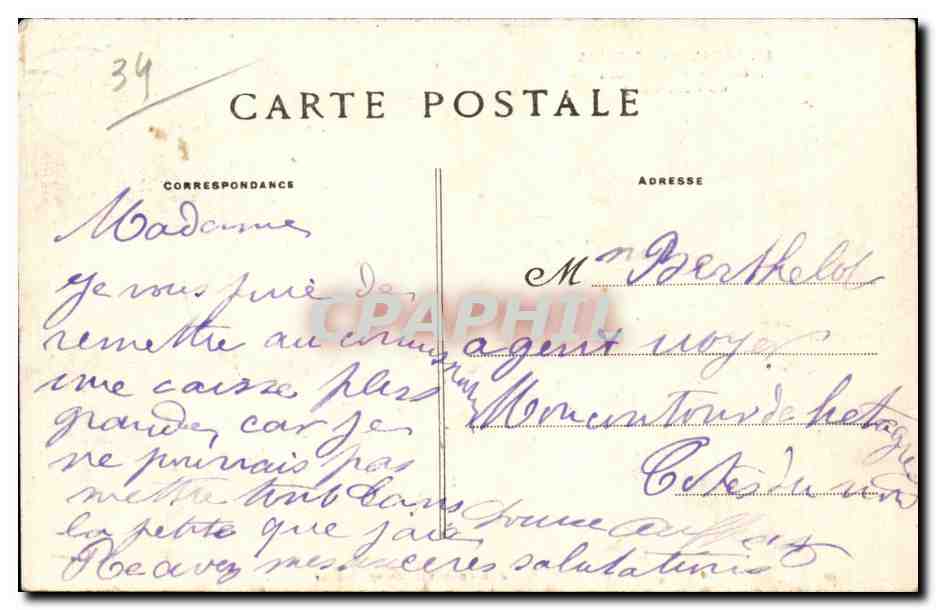 34
CARTE POSTALE
CORRESPONDANCE
Madame
Je vous prie de
remettre au commis
une caisse plus
grande, car je
ne pourrais pas
mettre tout dans
la petite que j'ai
Recevez mes sinceres salutations
ADRESSE
M Berthelot
agent voyer
Moncontour de bretagne
Cotes du nord
CPAPHIL